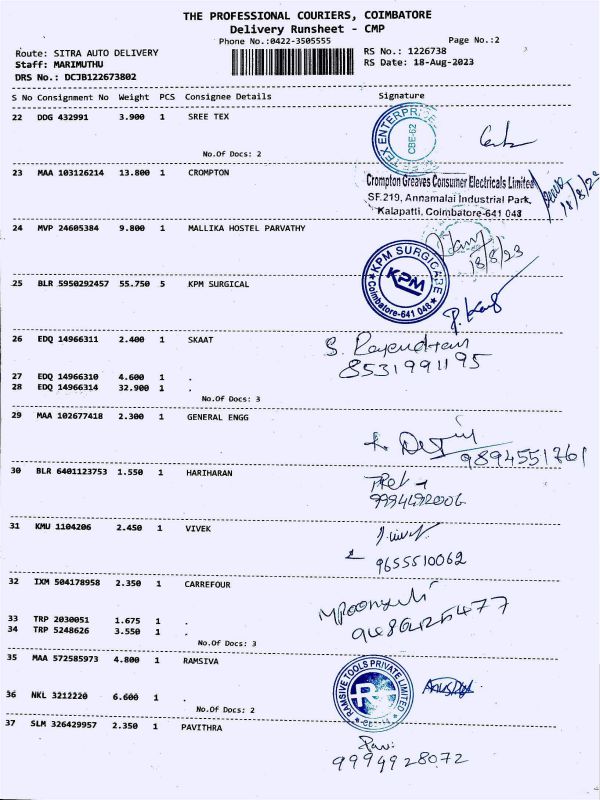 THE PROFESSIONAL COURIERS, COIMBATORE
Delivery Runsheet - CMP
Phone No.:0422-3505555
Page No.:2
Route: SITRA AUTO DELIVERY
RS No.: 1226738
Staff: MARIMUTHU
RS Date: 18-Aug-2023
DRS No.: DCJB122673802
S No Consignment No Weight PCS Consignee Details Signature
22 DDG 432991 3.900 1 SREE TEX
TEX ENTERPRIZE CBE-62
No.Of Docs: 2
23 MAA 103126214 13.800 1 CROMPTON
Crompton Greaves Consumer Electricals Limited
SF.219, Annamalai Industrial Park,
Kalapatti, Coimbatore-641 048
18/8/23
24 MVP 24605384 9.800 1 MALLIKA HOSTEL PARVATHY
18/8/23
25 BLR 5950292457 55.750 5 KPM SURGICAL
KPM SURGICARE
KPM
Coimbatore-641 048
26 EDQ 14966311 2.400 1 SKAAT
S. Rajendran
8531991195
27 EDQ 14966310 4.600 1 .
28 EDQ 14966314 32.900 1 .
No.Of Docs: 3
29 MAA 102677418 2.300 1 GENERAL ENGG
9894551761
30 BLR 6401123753 1.550 1 HARIHARAN
9994492006
31 KMU 1104206 2.450 1 VIVEK
9655510062
32 IXM 504178958 2.350 1 CARREFOUR
33 TRP 2030051 1.675 1 .
34 TRP 5248626 3.550 1 .
No.Of Docs: 3
35 MAA 572585973 4.800 1 RAMSIVA
RAMSIVE TOOLS PRIVATE LIMITED
36 NKL 3212220 6.600 1 .
No.Of Docs: 2
37 SLM 326429957 2.350 1 PAVITHRA
Pavi
9999928072